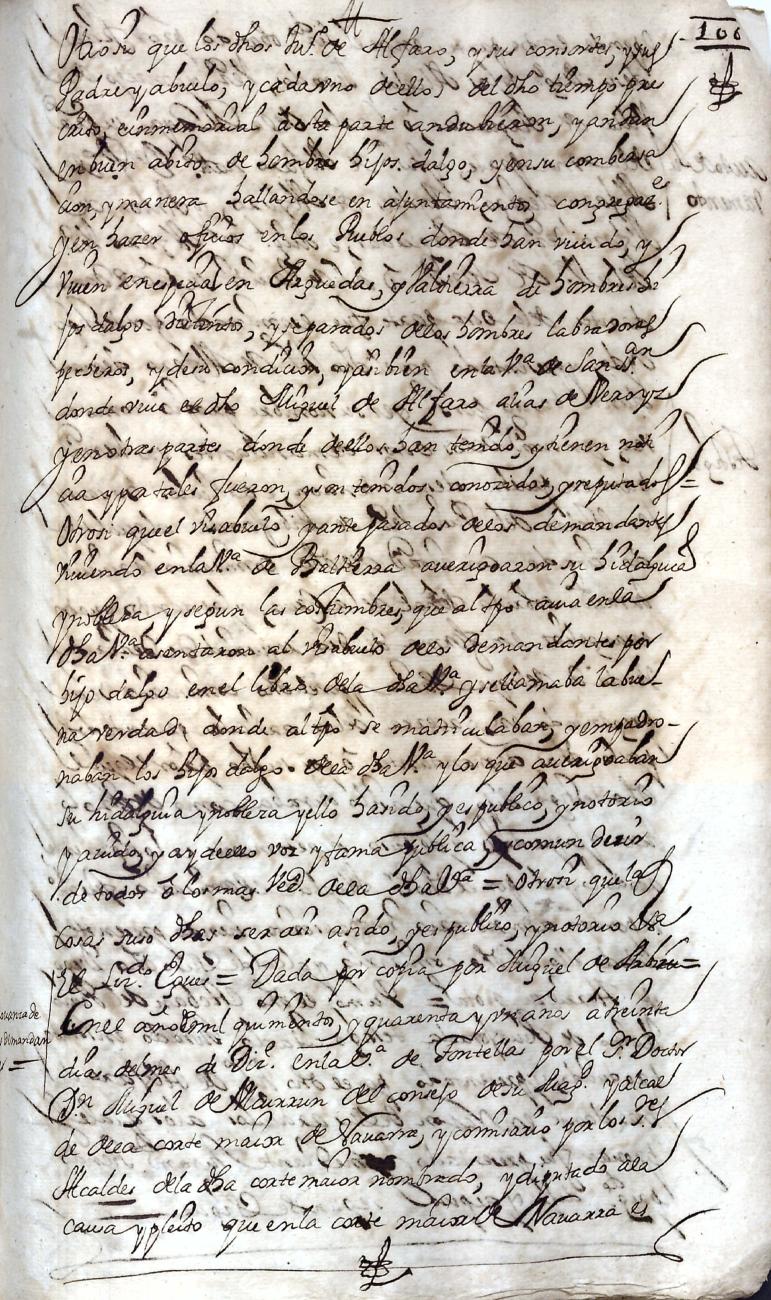 106
Otrosi que los dhos Ju.º de Alfaro, y sus consortes, y sus
Padre y abuelo, y cada vno de ellos, del dho tiempo pres
crito, einmemorial a esta parte andubieron, y andan
en buen abito de hombres hijos dalgo, y en su combersa
cion, y manera hallandose en ajuntamiento, congregaz.es
y en hazer oficios en los Pueblos donde han viuido, y
viuen en especial en Arguedas, y Valtierra de hombres hi
jos dalgo distintos, y separados de los hombres labradores
pecheros, y de su condicion, y asi bien en la V.ª de San
donde viue el dho Miguel de Alfaro alias de Veroyz
y en otras partes donde de ellos han tenido, y tienen noti
cia y por tales fueron, y son tenidos, conozidos, y reputados =
Otrosi que el visabuelo, y antepasados de los demandantes
viuiendo en la V.ª de Baltierra aueriguaron su hidalguia
y nobleza y segun las costumbres, que al tpo auia en la
dha V.ª asentaron al visabuelo de los demandantes por
hijo dalgo en el libro de la dha V.ª y se llamaba la bue-
na verdad, donde al tpo se matriculaban, y empadro-
naban los hijos dalgo de la dha V.ª y los que aueriguaban
su hidalguia y nobleza y ello ha sido, y es publico, y notorio
y a auido, y ay de ello voz y fama publica, y comun dezir
de todos o los mas Vez.ˢ de la dha V.ª = Otrosi que las
cosas suso dhas ser asi a sido, y es publico, y notorio
El Liz.do = Dada por copia por Miguel de
En el año de mil quinientos, y quarenta y vn años a treinta
dias del mes de Diz.e en la V.ª de Fontellas por el S.r Doctor
D.n Miguel de del consejo de su Mag.d y alcal
de de la corte maior de Nauarra, y comisario por los S.res
Alcaldes de la dha corte maior nombrado, y diputado a la
causa y pleito que en la corte maior de Nauarra es
demandan